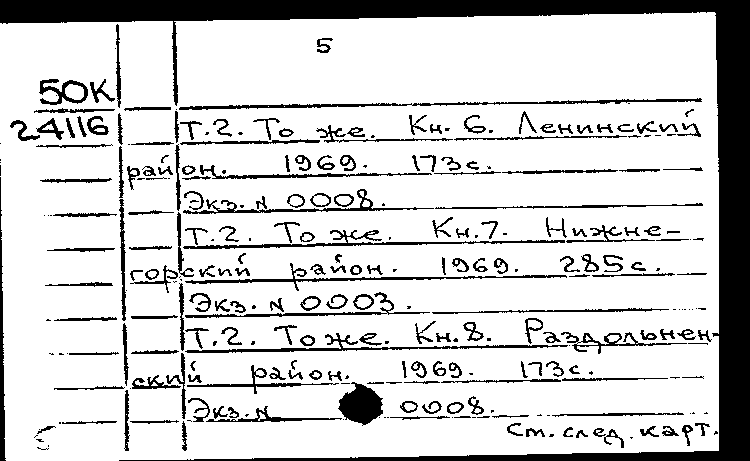 5
50К
24116
Т.2. То же. Кн. 6. Ленинский
район. 1969. 173с.
Экз. N 0008.
Т.2. То же. Кн.7. Нижне-
горский район. 1969. 285с.
Экз. N 0003.
Т.2. То же. Кн.8. Раздольнен-
ский район. 1969. 173с.
Экз. N 0008.
см. след. карт.